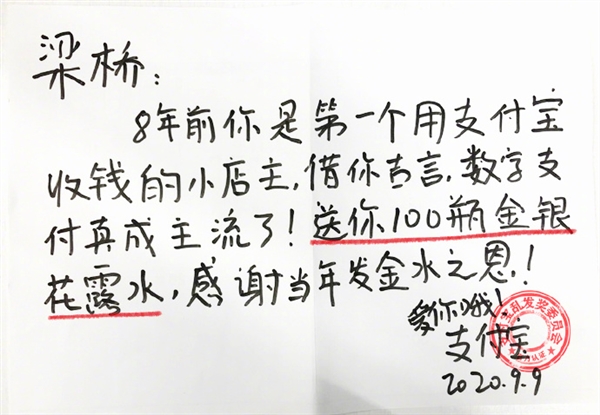 梁桥:
8年前你是第一个用支付宝
收钱的小店主,借你吉言,数字支
付真成主流了!送你100瓶金银
花露水,感谢当年发金水之恩!
爱你哦!
支付宝
2020.9.9
乱发奖委员会